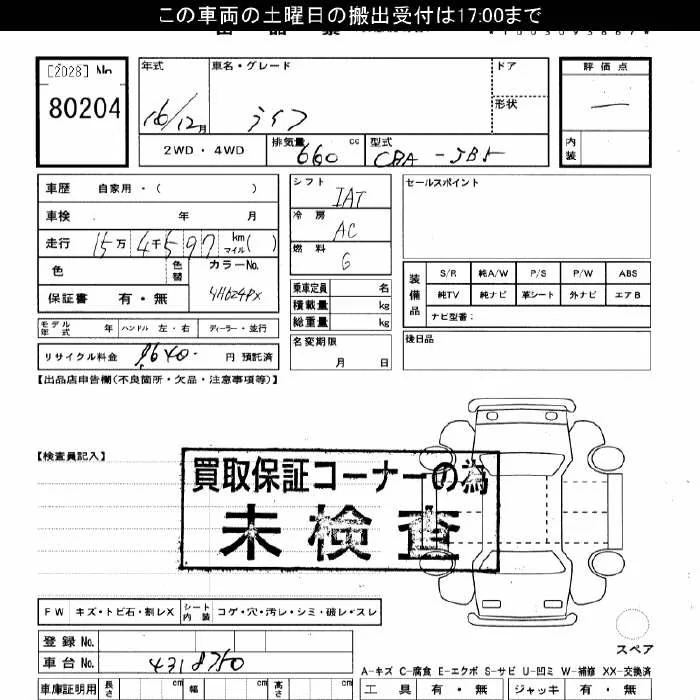 この車両の土曜日の搬出受付は17:00まで
[2028] No
80204
年式
16/12月
車名・グレード
ライフ
ドア
形状
評価点
—
内装
2WD・4WD
排気量
660
cc
型式
CBA-JB5
車歴 自家用・( )
車検 年 月
走行 15万 4千 5 9 7 km マイル( )
色
色替
カラーNo.
YH624PX
保証書 有・無
シフト
IAT
冷房
AC
燃料
G
乗車定員 名
積載量 kg
総重量 kg
名変期限
月 日
セールスポイント
装備品
S/R 純A/W P/S P/W ABS
純TV 純ナビ 革シート 外ナビ エアB
ナビ型番:
後日品
モデル年式 年 ハンドル 左・右 ディーラー・並行
リサイクル料金 9640- 円 預託済
【出品店申告欄(不良箇所・欠品・注意事項等)】
【検査員記入】
買取保証コーナーの為
未検査
FW キズ・トビ石・割レX シート内装 コゲ・穴・汚レ・シミ・破レ・スレ
登録No.
車台No. 4318750
スペア
A-キズ C-腐食 E-エクボ S-サビ U-凹ミ W-補修 XX-交換済
車庫証明用 長さ cm 幅 cm 高さ cm
工具 有・無 ジャッキ 有・無